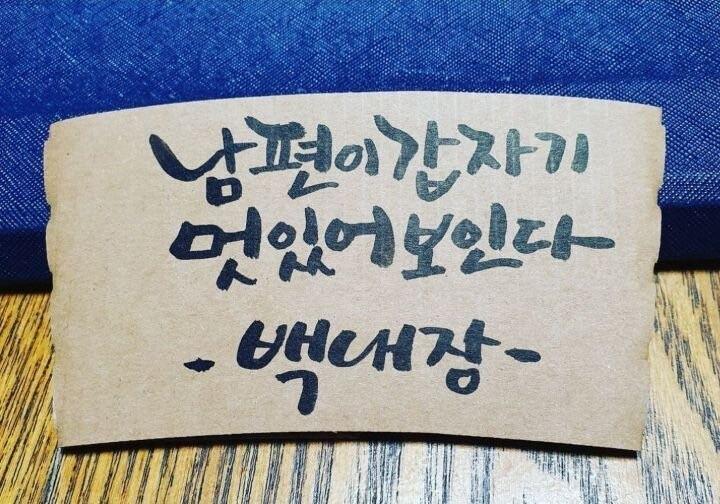 남편이 갑자기
멋있어 보인다
- 백대장 -